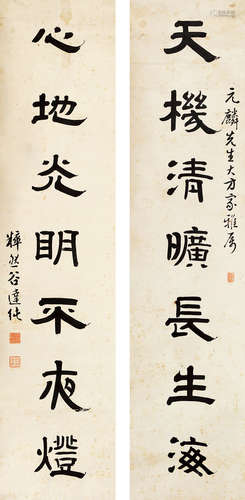 天機清曠長生海
元麟先生大方家雅屬
心地光明不夜燈
粹然谷達純